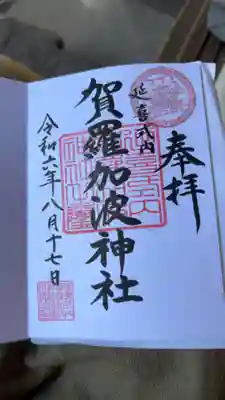 奉拝
延喜式内
賀羅加波神社
令和六年八月十七日